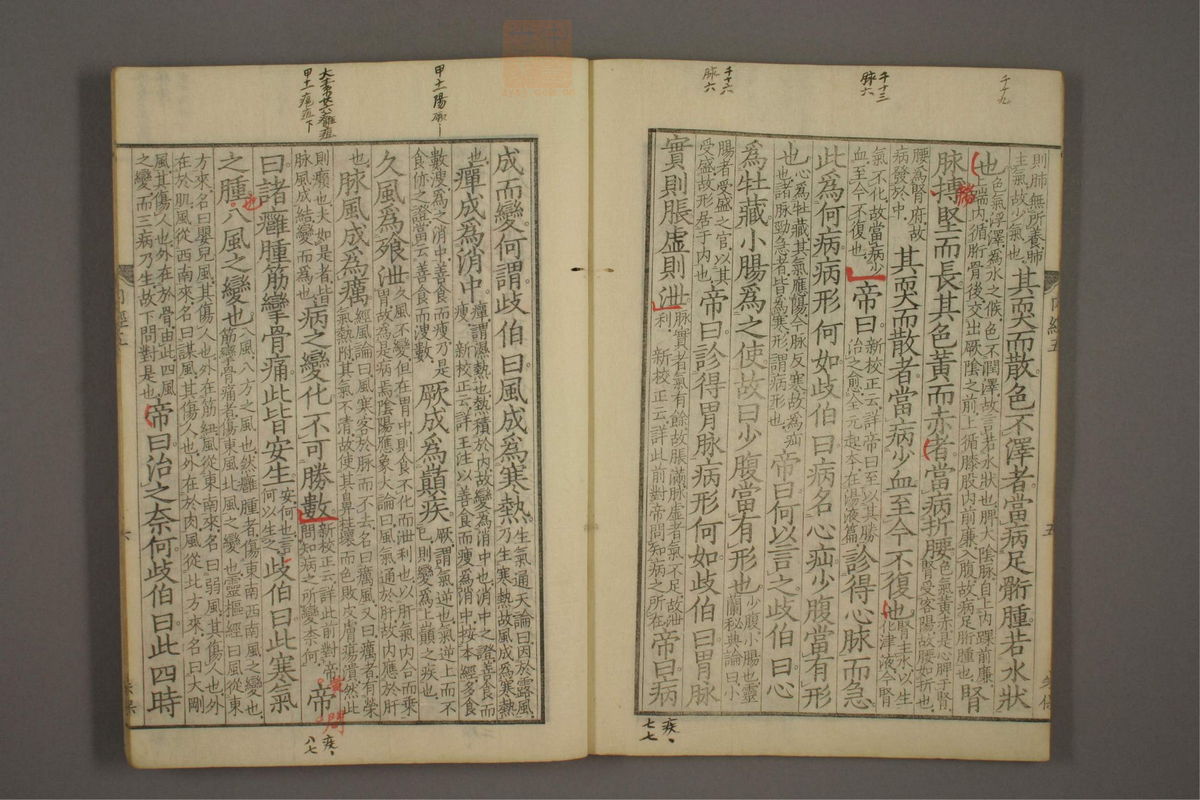 千十九
千十三
脉六
千十六
脉六
則肺無所養肺
主氣故少氣也
其耎而散色不澤者當病足䯒腫若水狀
也
色氣浮澤為水之候色不潤澤故言若水狀也脾太陰脉自上内踝前廉
上端内循䯒骨後交出厥陰之前上循膝股内前廉入腹故病足䯒腫也
腎
脉搏堅而長其色黄而赤者當病折腰
色氣黄赤是心脾干腎
腎受客陽故腰如折也
腰為腎府故
病發於中
其耎而散者當病少血至今不復也
腎主水以生
化津液今腎
氣不化故當病少
血至今不復也
帝曰
新校正云詳帝曰至以其勝
治之愈全元起本在湯液篇
診得心脉而急
此為何病病形何如歧伯曰病名心疝少腹當有形
也
心為牡藏其氣應陽今脉反寒故為疝
也諸脉勁急者皆為寒形謂病形也
帝曰何以言之歧伯曰心
為牡藏小腸為之使故曰少腹當有形也
少腹小腸也靈
蘭秘典論曰小
腸者受盛之官以其
受盛故形居于内也
帝曰診得胃脉病形何如歧伯曰胃脉
實則脹虛則泄
脉實者氣有餘故脹滿脉虚者氣不足故泄
利 新校正云詳此前對帝問知病之所在
帝曰病
疾
七七
成而變何謂歧伯曰風成為寒熱
生氣通天論曰因於露風
乃生寒熱故風成為寒熱
也
癉成為消中
癉謂濕熱也熱積於内故變為消中也消中之證善食而
瘦 新校正云詳王注以善食而瘦為消中按本經多食
數溲為之消中善食而瘦乃是
食㑊之證當云善食而溲數
厥成為巔疾
厥謂氣逆也氣逆上而不
已則變為上巔之疾也
久風為飱泄
久風不變但在胃中則食不化而泄利也以肝氣内合而乘
胃故為是病焉陰陽應象大論曰風氣通於肝故内應於肝
也
脉風成為癘
經風論曰風寒客於脉而不去名曰癘風又曰癘者有榮
氣熱胕其氣不清故使其鼻柱壞而色敗皮膚瘍潰然此
則癩也夫如是者皆
脉風成結變而為也
病之變化不可勝數
新校正云詳此前對帝
問知病之所變奈何
帝
曰諸癰腫筋攣骨痛此皆安生
安何也言
何以生之
歧伯曰此寒氣
之腫八風之變也
八風八方之風也然癰腫者傷東南西南風之變也
筋攣骨痛者傷東風北風之變也靈樞經曰風從東
方來名曰嬰兒風其傷人也外在筋紐風從東南來名曰弱風其傷人也外
在於肌風從西南來名曰謀風其傷人也外在於肉風從北方來名曰大剛
風其傷人也外在於骨由此四風
之變而三病乃生故下問對是也
帝曰治之奈何歧伯曰此四時
甲土陽
疾
八七